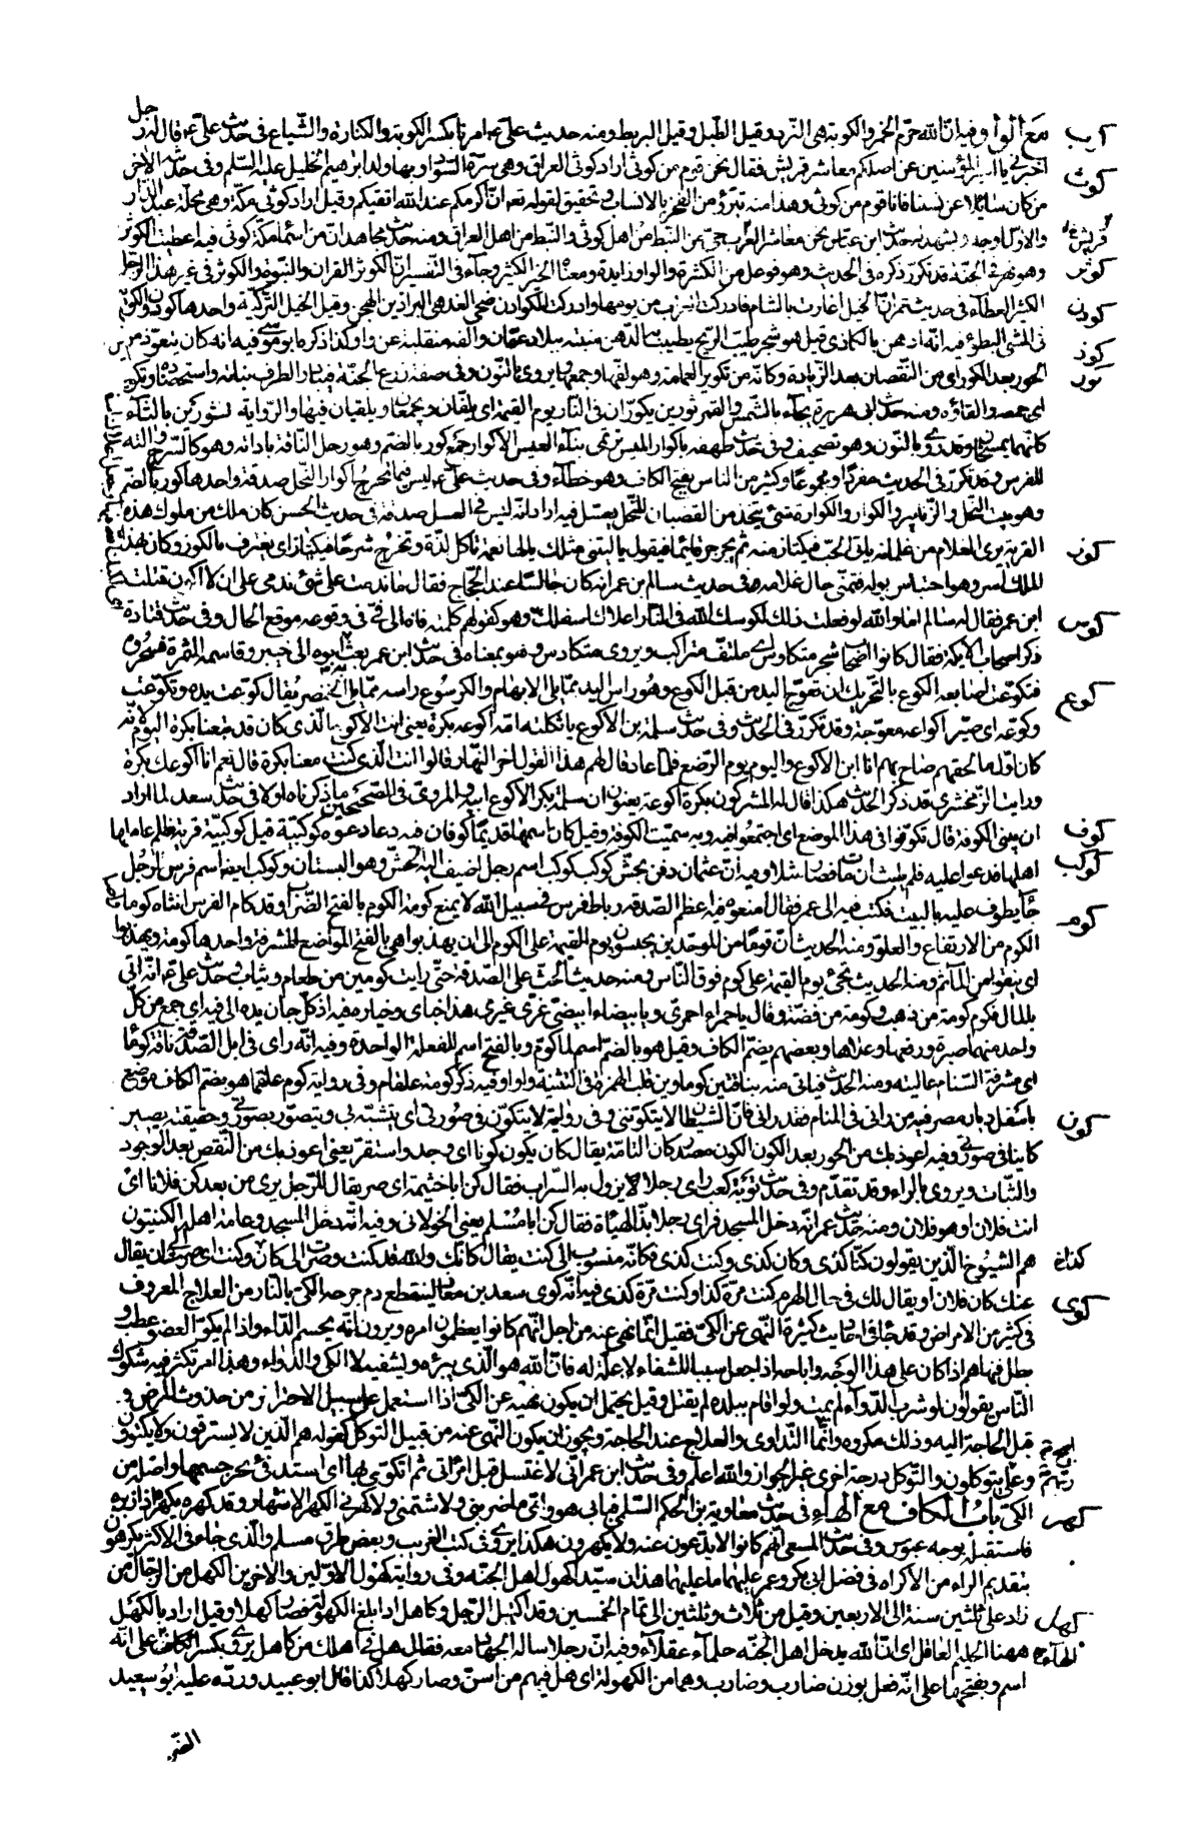 كوب مع الواو فيه ان الله حرم الخمر والكوبة هى النرد وقيل الطبل وقيل البربط ومنه حديث على امرنا بكسر الكوبة والكنارة والشياع فى حديث على قال له رجل
كوث اخبرنى يا امير المؤمنين عن اصلكم معاشر قريش فقال نحن قوم من كوثى اراد كوثى العراق وهى سرة السواد وبها ولد ابراهيم الخليل عليه السلم وفى حديثه الاخر
من كان سائلا عن نسبنا فانا قوم من كوثى وهذا منه تبرؤ من الفخر بالانساب وتحقيق لقوله تعم ان اكرمكم عند الله اتقيكم وقيل اراد كوثى مكة وهى محلة عبد الدار
والاول اوجه ويشهد له حديث ابن عباس نحن معاشر قريش حى من النبط من اهل كوثى والنبط من اهل العراق ومنه حديث مجاهد ان من اسماء مكة كوثى فيه اعطيت الكوثر
كوثر وهو نهر فى الجنة قد تكرر ذكره فى الحديث وهو فوعل من الكثرة والواو زايدة ومعناه الخير الكثير وجاء فى التفسير ان الكوثر القران والنبوة والكوثر فى غير هذا الرجل
كودن الكثير العطاء فى حديث عمر ان الخيل اغارت بالشام فادركت العراب من يومها وادركت الكوادن ضحى الغد هى البراذين الهجن وقيل الخيل التركية واحدها كودن والكودنة
كوذ فى المشى البطؤ فيه انه ادهن بالكاذى قيل هو شجر طيب الريح يطيب به الدهن منبته ببلاد عمان والفه منقلبة عن واو كذا ذكره ابو موسى فيه انه كان يتعوذ من
كور الحور بعد الكور اى من النقصان بعد الزيادة وكانه من تكوير العمامة وهو لفها وجمعها ويروى بالنون وفى صفة زرع الجنة فيبادر الطرف نباته واستحصاده وتكويره
اى جمعه والقاؤه ومنه حديث ابى هريرة يجاء بالشمس والقمر ثورين يكوران فى النار يوم القيمة اى يلفان ويجمعان ويلقيان فيها والرواية ثورين بالثاء
كانهما يمسخان وقد روى بالنون وهو تصحيف وفى حديث طهفة باكوار الميس ترتمى بنا العيس الاكوار جمع كور بالضم وهو رحل الناقة باداته وهو كالسرج والته
للفرس وقد تكرر فى الحديث مفردا ومجموعا وكثير من الناس يفتح الكاف وهو خطاء وفى حديث على ليس فيما تخرج اكوار النحل صدقة واحدها كور بالضم
وهو بيت النحل والزنابير والكوار والكوارة شئ يتخذ من القضبان للنحل يعسل فيه اراد انه ليس فى العسل صدقة فى حديث الحسن كان ملك من ملوك هذه
كوز القرية يرى الغلام من غلمانه ياتى الحب فيكتاز منه ثم يجرجر قائما فيقول يا ليتنى مثلك يا لها نعمة تاكل لذة وتخرج سرحا فيكتاز اى يغترف بالكوز وكان بهذا
الملك اسر وهو احتباس بوله فتمنى حال غلامه فى حديث سالم بن عمر انه كان جالسا عند الحجاج فقال ما ندمت على شئ ندمى على ان لا اكون قتلت
كوس ابن عمر فقال له سالم اما والله لو فعلت ذلك لكوسك الله فى النار اعلاك اسفلك وهو كقولهم كلمته فاه الى فى فى وقوعه موقع الحال وفى حديث قتادة
ذكر اصحاب الايكة فقال كانوا اصحاب شجر متكاوس اى ملتف متراكب ويروى متكادس وهو بمعناه فى حديث ابن عمر بعث به ابوه الى خيبر وقاسمهم الثمرة فسحروه
كوع فتكوعت اصابعه الكوع بالتحريك ان تعوج اليد من قبل الكوع وهو راس اليد مما يلى الابهام والكرسوع راسه مما يلى الخنصر يقال كوعت يده وتكوعت
وكوعه اى صير اكواعه معوجة وقد تكرر فى الحديث وفى حديث سلمة بن الاكوع يا ثكلته امه اكوعه بكرة يعنى انت الاكوع الذى كان قد تبعنا بكرة اليوم لانه
كان اول ما لحقهم صاح بهم انا ابن الاكوع واليوم يوم الرضع فلما عاد قال لهم هذا القول اخر النهار قالوا انت الذى كنت معنا بكرة قال نعم انا اكوعك بكرة
ورايت الزمخشرى قد ذكر الحديث هكذا قال له المشركون بكرة اكوعة يعنون ان سلمة بكر الاكوع ابيه والمروى فى الصحيحين ما ذكرناه اولا فى حديث سعد لما اراد
كوف ان يبنى الكوفة قال تكوفوا فى هذا الموضع اى اجتمعوا فيه وبه سميت الكوفة وقيل كان اسمها قديما كوفان فيه دعا دعوة كوكبية قيل كوكبية قرية ظلم عاملها
كوكب اهلها فدعوا عليه فلم يلبث ان مات فصارت مثلا وفيه ان عثمان دفن بحش كوكب كوكب اسم رجل اضيف اليه الحش وهو البستان وكوكب ايضا اسم فرس لرجل
كوم جاء يطوف عليه بالبيت فكتب فيه الى عمر فقال امنعوه فيه اعظم الصدقة رباط فرس فى سبيل الله لا يمنع كومه الكوم بالفتح الضراب وقد كام الفرس انثاه كوما واصل
الكوم من الارتفاع والعلو ومنه الحديث ان قوما من الموحدين يحبسون يوم القيمة على الكوم الى ان يهذبوا هى بالفتح المواضع المشرفة واحدها كومة ويهذبوا
اى ينقوا من المآثم ومنه الحديث يجئ يوم القيمة على كوم فوق الناس ومنه حديث الحث على الصدقة حتى رايت كومين من طعام وثياب وحديث على انه اتى
بالمال فكوم كومة من ذهب وكومة من فضة وقال يا حمراء احمرى ويا بيضاء ابيضى غرى غيرى هذا جناى وخياره فيه اذ كل جان يده الى فيه اى جمع من كل
واحد منهما صبرة ورفعها وعلاها وبعضهم يضم الكاف وقيل هو بالضم اسم لما كوم وبالفتح اسم للفعلة الواحدة وفيه انه راى فى ابل الصدقة ناقة كوماء
اى مشرفة السنام عاليته ومنه الحديث فياتى منه بناقتين كوماوين قلب الهمزة فى التثنية واوا وفيه ذكر كوم علقام وفى رواية كوم علقماء هو بضم الكاف موضع
كون باسفل ديار مصر فيه من رانى فى المنام فقد رانى فان الشيطان لا يتكوننى وفى رواية لا يتكون فى صورتى اى يتشبه بى ويتصور بصورتى وحقيقته يصير
كاينا فى صورتى وفيه اعوذ بك من الحور بعد الكون الكون مصدر كان التامة يقال كان يكون كونا اى وجد واستقر يعنى اعوذ بك من النقص بعد الوجود
والثبات ويروى بالراء وقد تقدم وفى حديث توبة كعب راى رجلا لا يزول به السراب فقال كن ابا خيثمة اى صر يقال للرجل يرى من بعد كن فلانا اى
انت فلان او هو فلان ومنه حديث عمر انه دخل المسجد فراى رجلا بذ الهيئة فقال كن ابا مسلم يعنى الخولانى وفيه انه دخل المسجد وعامة اهله الكنتيون
هم الشيوخ الذين يقولون كنا كذى وكان كذى وكنت كذى فكانه منسوب الى كنت يقال كانك والله قد كنت وصرت الى كان وكنت اى صرت الى ان يقال
كوى عنك كان فلان او يقال لك فى حال الهرم كنت مرة كذا وكنت مرة كذى فيه انه كوى سعد بن معاذ لينقطع دم جرحه الكى بالنار من العلاج المعروف
فى كثير من الامراض وقد جاء فى احاديث كثيرة النهى عن الكى فقيل انما نهى عنه من اجل انهم كانوا يعظمون امره ويرون انه يحسم الداء واذا لم يكو العضو عطب و
بطل فنهاهم اذا كان على هذا الوجه واباحه اذا جعل سببا للشفاء لا علة له فان الله هو الذى يبرئه ويشفيه لا الكى والدواء وهذا امر تكثر فيه شكوك
الناس يقولون لو شرب الدواء لم يمت ولو اقام ببلده لم يقتل وقيل يحتمل ان يكون نهيه عن الكى اذا استعمل على سبيل الاحتراز من حدوث المرض و
قبل الحاجة اليه وذلك مكروه وانما التداوى والعلاج عند الحاجة ويجوز ان يكون النهى عنه من قبيل التوكل كقوله هم الذين لا يسترقون ولا يكتوون
وعلى ربهم يتوكلون والتوكل درجة اخرى غير الجواز والله اعلم وفى حديث ابن عمر انى لاغتسل قبل امراتى ثم اتكوى بها اى استدفئ بحر جسمها واصله من
كهر الكى باب الكاف مع الهاء فى حديث معاوية بن الحكم السلمى فبابى هو وامى ما ضربنى ولا شتمنى ولا كهرنى الكهر الانتهار وقد كهره يكهره اذا زبره
فاستقبله بوجه عبوس وفى حديث المسعى انهم كانوا لا يدعون عنه ولا يكهرون هكذا يروى فى كتب الغريب وبعض طرق مسلم والذى جاء فى الاكثر يكرهون
بتقديم الراء من الاكراه فى فضل ابى بكر وعمر هذان سيدا كهول اهل الجنة وفى رواية كهول الاولين والاخرين الكهل من الرجال من
كهل زاد على ثلثين سنة الى الاربعين وقيل من ثلاث وثلثين الى تمام الخمسين وقد اكتهل الرجل وكاهل اذا بلغ الكهولة فصار كهلا وقيل اراد بالكهل
ههنا الحليم العاقل اى ان الله يدخل اهل الجنة حلماء عقلاء وفيه ان رجلا ساله الجهاد معه فقال هل فى اهلك من كاهل يروى بكسر الهاء على انه
اسم وبفتحها على انه فعل بوزن ضارب وضارب وهما من الكهولة اى هل فيهم من اسن وصار كهلا كذا قال ابو عبيد ورده عليه ابو سعيد
الضر